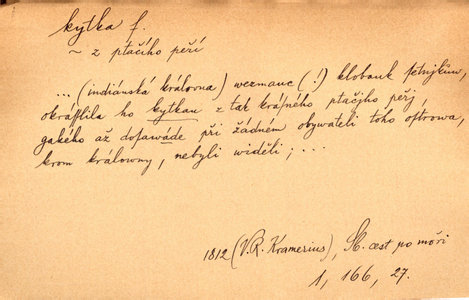 kytka f.
~ z ptačího peří
... (indiánská králowna) wezmauc (!) klobauk Petrijkům,
okrášlila ho kytkau z tak krásného ptačjho peřj,
gakého až dosawáde při žádném obywateli toho ostrowa,
krom králowny, nebyli widěli; ...
1812 (V. R. Kramerius), Sb. cest po moři
1, 166, 27.